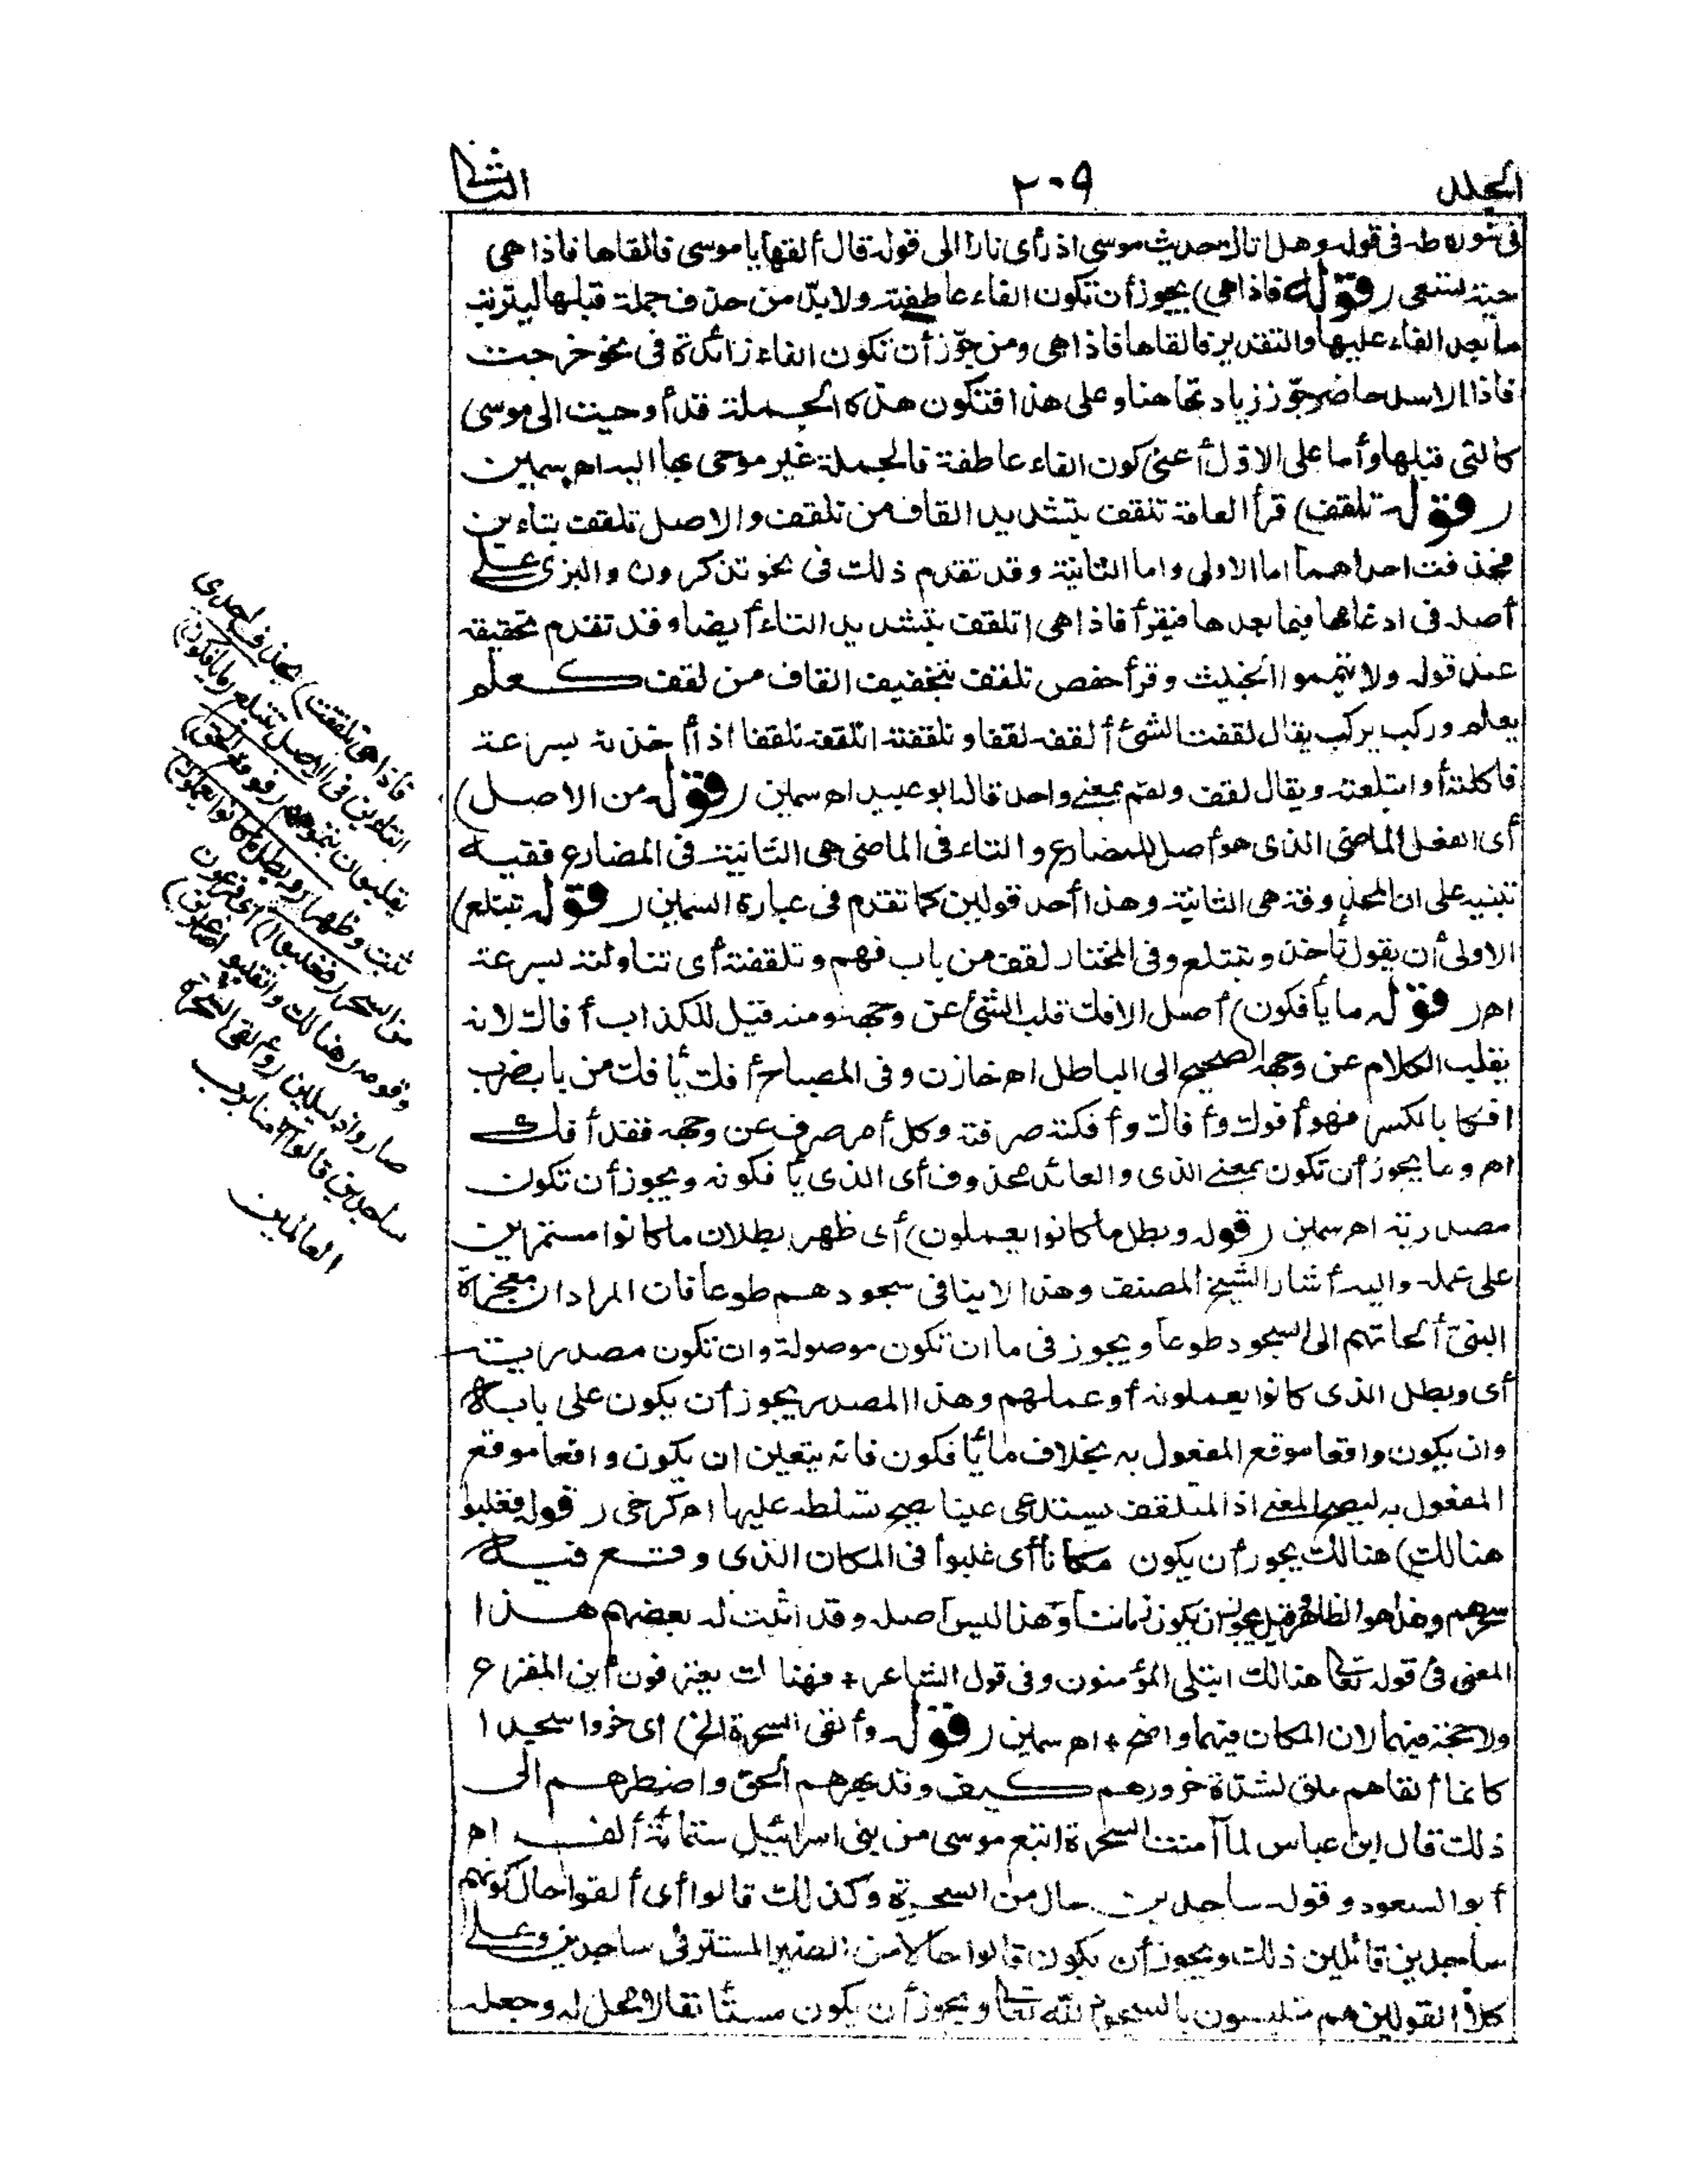 المجلد ٢٠٩ الثانى
فى سورة طه فى قوله وهل أتاك حديث موسى اذ رأى نارا الى قوله قال ألقها يا موسى فالقاها فاذا هى
حية تسعى (قوله فاذا هى) يجوز أن تكون الفاء عاطفة ولا بدّ من حذف جملة قبلها ليترتب
ما بعد الفاء عليها والتقدير فالقاها فاذا هى ومن جوّز أن تكون الفاء زائدة فى نحو خرجت
فاذا الاسد حاضر جوّز زيادتها هنا وعلى هذا فتكون هذه الجملة قد أوحيت الى موسى
كالتى قبلها وأما على الاوّل أعنى كون الفاء عاطفة فالجملة غير موحى بها اليه اه سمين
(قوله تلقف) قرأ العامة تلقف بتشديد القاف من تلقف والاصل تتلقف بتاءين
فحذفت احداهما اما الاولى واما الثانية وقد تقدم ذلك فى نحو تذكرون والبزى على
أصله فى ادغامها فيما بعدها فيقرأ فاذا هى اتلقف بتشديد التاء أيضا وقد تقدم تحقيقه
عند قوله ولا تيمموا الخبيث وقرأ حفص تلقف بتخفيف القاف من لقف كعلم
يعلم وركب يركب يقال لقفت الشئ ألقفه لقفا وتلقفته اتلقفه تلقفا اذا أخذته بسرعة
فاكلته أو ابتلعته ويقال لقف ولقم بمعنى واحد قاله ابو عبيد اه سمين (قوله من الاصل)
أى الفعل الماضى الذى هو أصل للمضارع والتاء فى الماضى هى الثانية فى المضارع ففيه
تنبيه على ان المحذوفة هى الثانية وهذا أحد قولين كما تقدم فى عبارة السمين (قوله تبتلع)
الاولى أن يقول تأخذ وتبتلع وفى المختار لقف من باب فهم وتلقفته أى تناولته بسرعة
اه (قوله ما يأفكون) أصل الافك قلب الشئ عن وجهه ومنه قيل للكذاب أفاك لانه
يقلب الكلام عن وجهه الصحيح الى الباطل اه خازن وفى المصباح أفك يأفك من باب ضرب
افكا بالكسر فهو أفوك وأفاك وأفكته صرفته وكل أمر صرف عن وجهه فقد أفك
اه وما يجوز أن تكون بمعنى الذى والعائد محذوف أى الذى يأفكونه ويجوز أن تكون
مصدرية اه سمين (قوله وبطل ما كانوا يعملون) أى ظهر بطلان ما كانوا مستمرين
على عمله واليه أشار الشيخ المصنف وهذا لا ينافى سجودهم طوعا فان المراد ان معجزة
النبىّ ألجأتهم الى السجود طوعا ويجوز فى ما ان تكون موصولة وان تكون مصدرية
أى وبطل الذى كانوا يعملونه أو عملهم وهذا المصدر يجوز أن يكون على بابه
وان يكون واقعا موقع المفعول به بخلاف ما يأفكون فانه يتعين ان يكون واقعا موقع
المفعول به ليصح المعنى اذ المتلقف يستدعى عينا يصح تسلطه عليها اه كرخى (قوله فغلبوا
هنالك) هنالك يجوز أن يكون مكانا أى غلبوا فى المكان الذى وقع فيه
سحرهم وهذا هو الظاهر وقيل يجوز ان يكون زمانا وهذا ليس أصله وقد اثبت له بعضهم هذا
المعنى فى قوله تعالى هنالك ابتلى المؤمنون وفى قول الشاعر + فهناك يعترفون أين المفزع
ولا حجة فيهما لان المكان فيهما واضح + اه سمين (قوله وألقى السحرة الخ) اى خروا سجدا
كانما ألقاهم ملق لشدة خرورهم كيف وقد بهرهم الحق واضطرهم الى
ذلك قال ابن عباس لما آمنت السحرة اتبع موسى من بنى اسرائيل ستمائة ألف اه
أبو السعود وقوله ساجدين حال من السحرة وكذلك قالوا أى ألقوا حال كونهم
ساجدين قائلين ذلك ويجوز أن يكون قالوا حالا من الضمير المستتر فى ساجدين وعلى
كلا القولين هم متلبسون بالسجود لله تعالى ويجوز أن يكون مستأنفا لا محل له وجعله
فاذا هى تلقف) بحذف احدى
التاءين فى الاصل تبتلع (ما يأفكون)
يقلبون بتمويههم (فوقع الحق)
ثبت وظهر (وبطل ما كانوا يعملون)
من السحر (فغلبوا) أى فرعون
وقومه (هنالك وانقلبوا صاغرين)
صاروا ذليلين (وألقى السحرة
ساجدين قالوا آمنا برب
العالمين